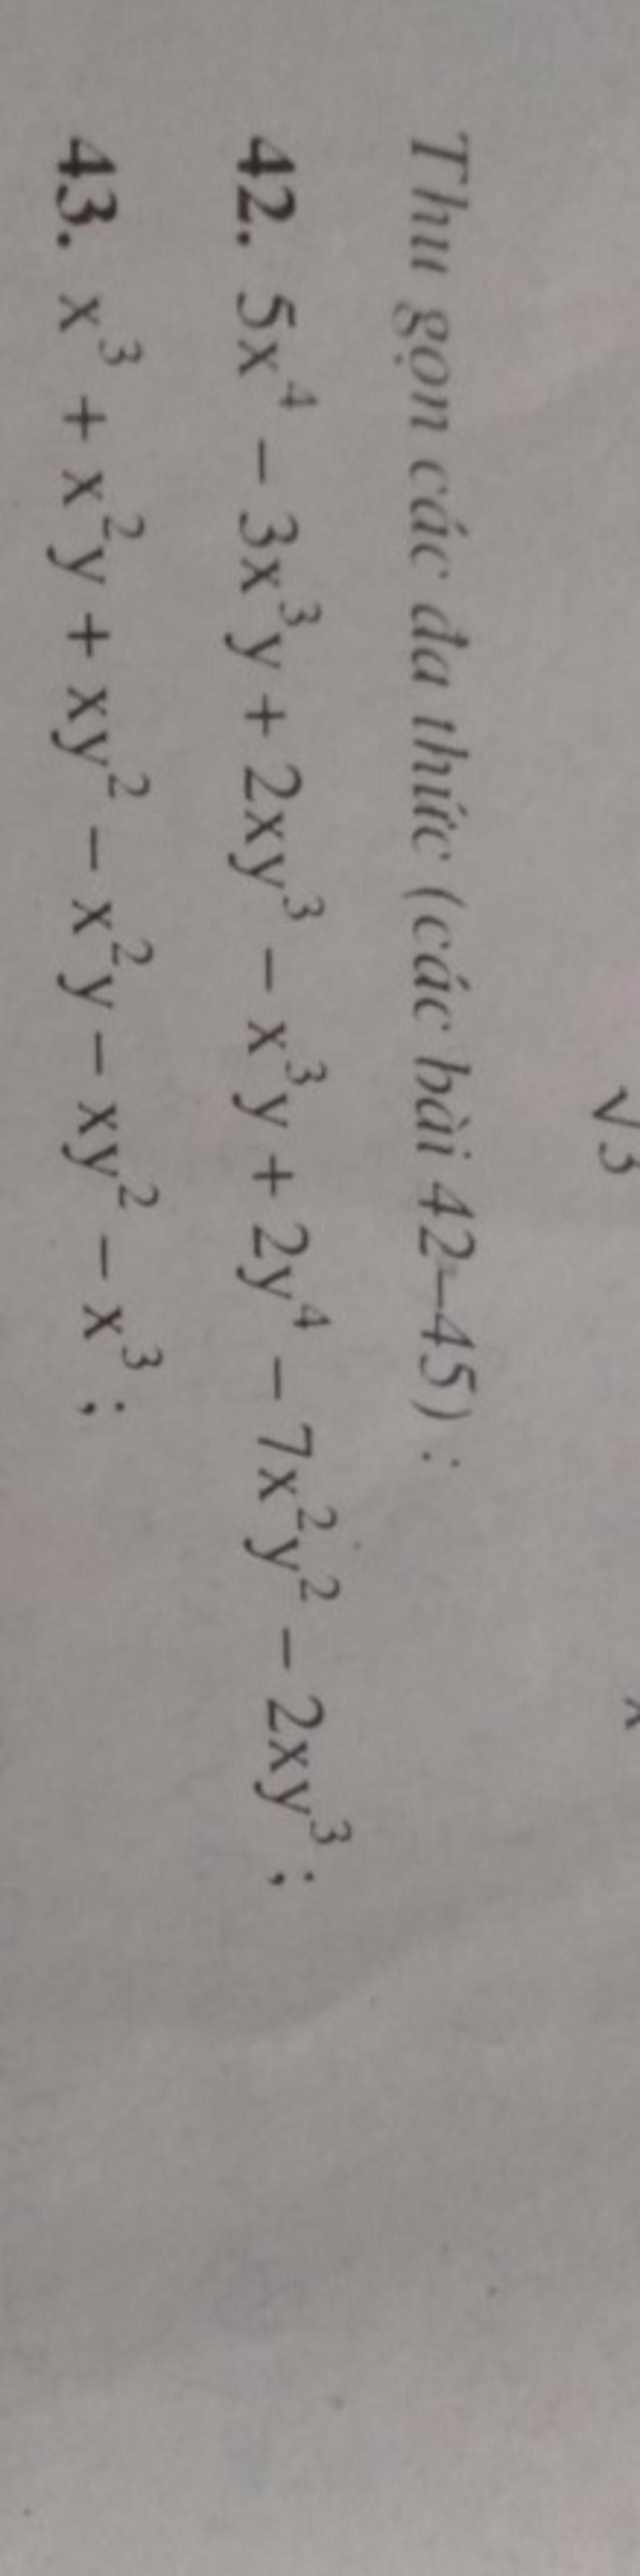 √3
Thu gọn các đa thức (các bài 42–45) :
42. 5x⁴ – 3x³y + 2xy³ – x³y + 2y⁴ – 7x²y² – 2xy³ ;
43. x³ + x²y + xy² – x²y – xy² – x³ ;